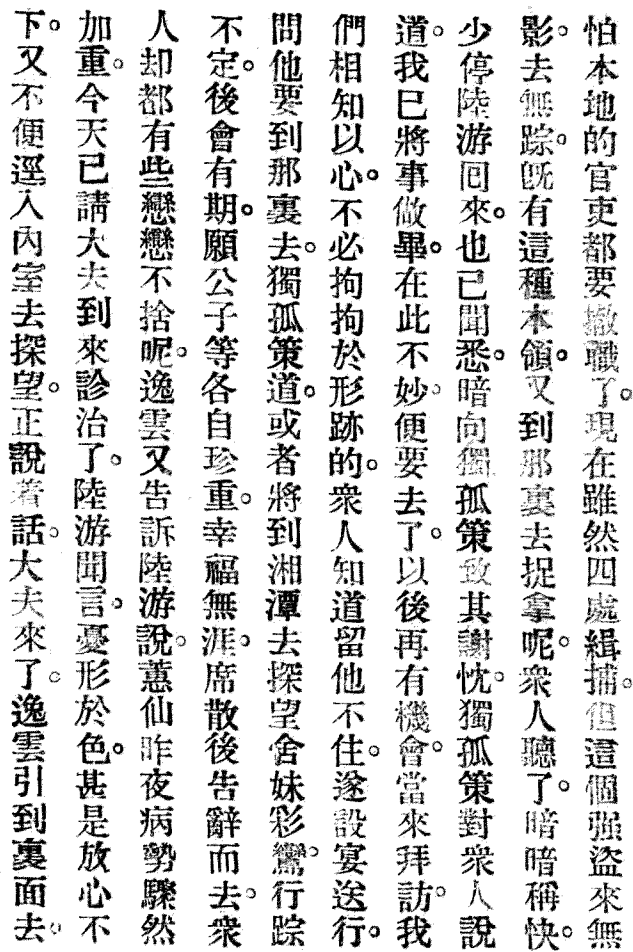 怕本地的官吏都要撤職了。現在雖然四處緝捕。但這個强盜來無
影去無踪。旣有這種本領。又到那裏去捉拿呢。衆人聽了。暗暗稱快。
少停陸游回來。也已聞悉。暗向獨孤策致其謝忱。獨孤策對衆人說
道。我已將事做畢。在此不妙。便要去了。以後再有機會。當來拜訪。我
們相知以心。不必拘拘於形跡的。衆人知道留他不住。遂設宴送行。
問他要到那裏去。獨孤策道。或者將到湘潭去探望舍妹彩鸞。行踪
不定。後會有期。願公子等各自珍重。幸福無涯。席散後告辭而去。衆
人却都有些戀戀不捨呢。逸雲又告訴陸游說。蕙仙昨夜病勢驟然
加重。今天已請大夫到來診治了。陸游聞言。憂形於色。甚是放心不
下。又不便逕入內室去探望。正說着話。大夫來了。逸雲引到裏面去。